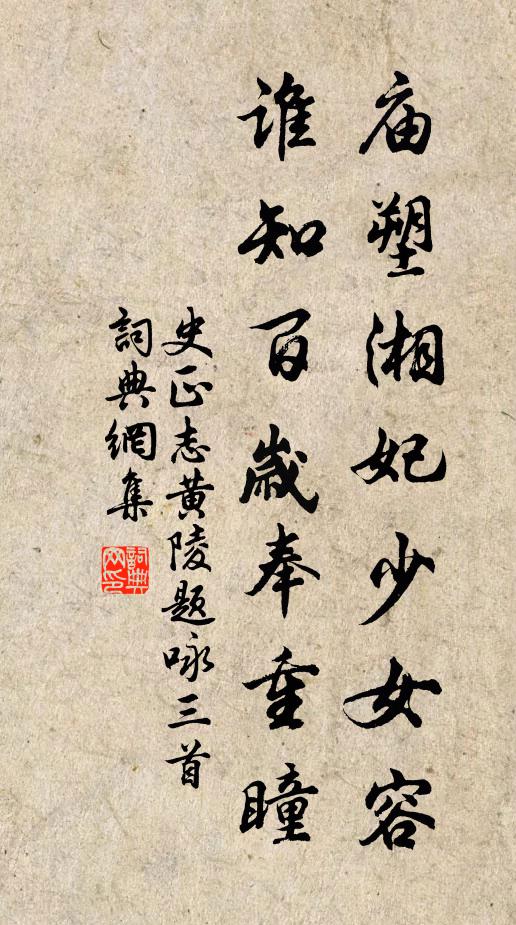 庙塑湘妃少女容
谁知百歲奉重瞳
史正志黄陵题咏三首
詞典網集
詞典网印